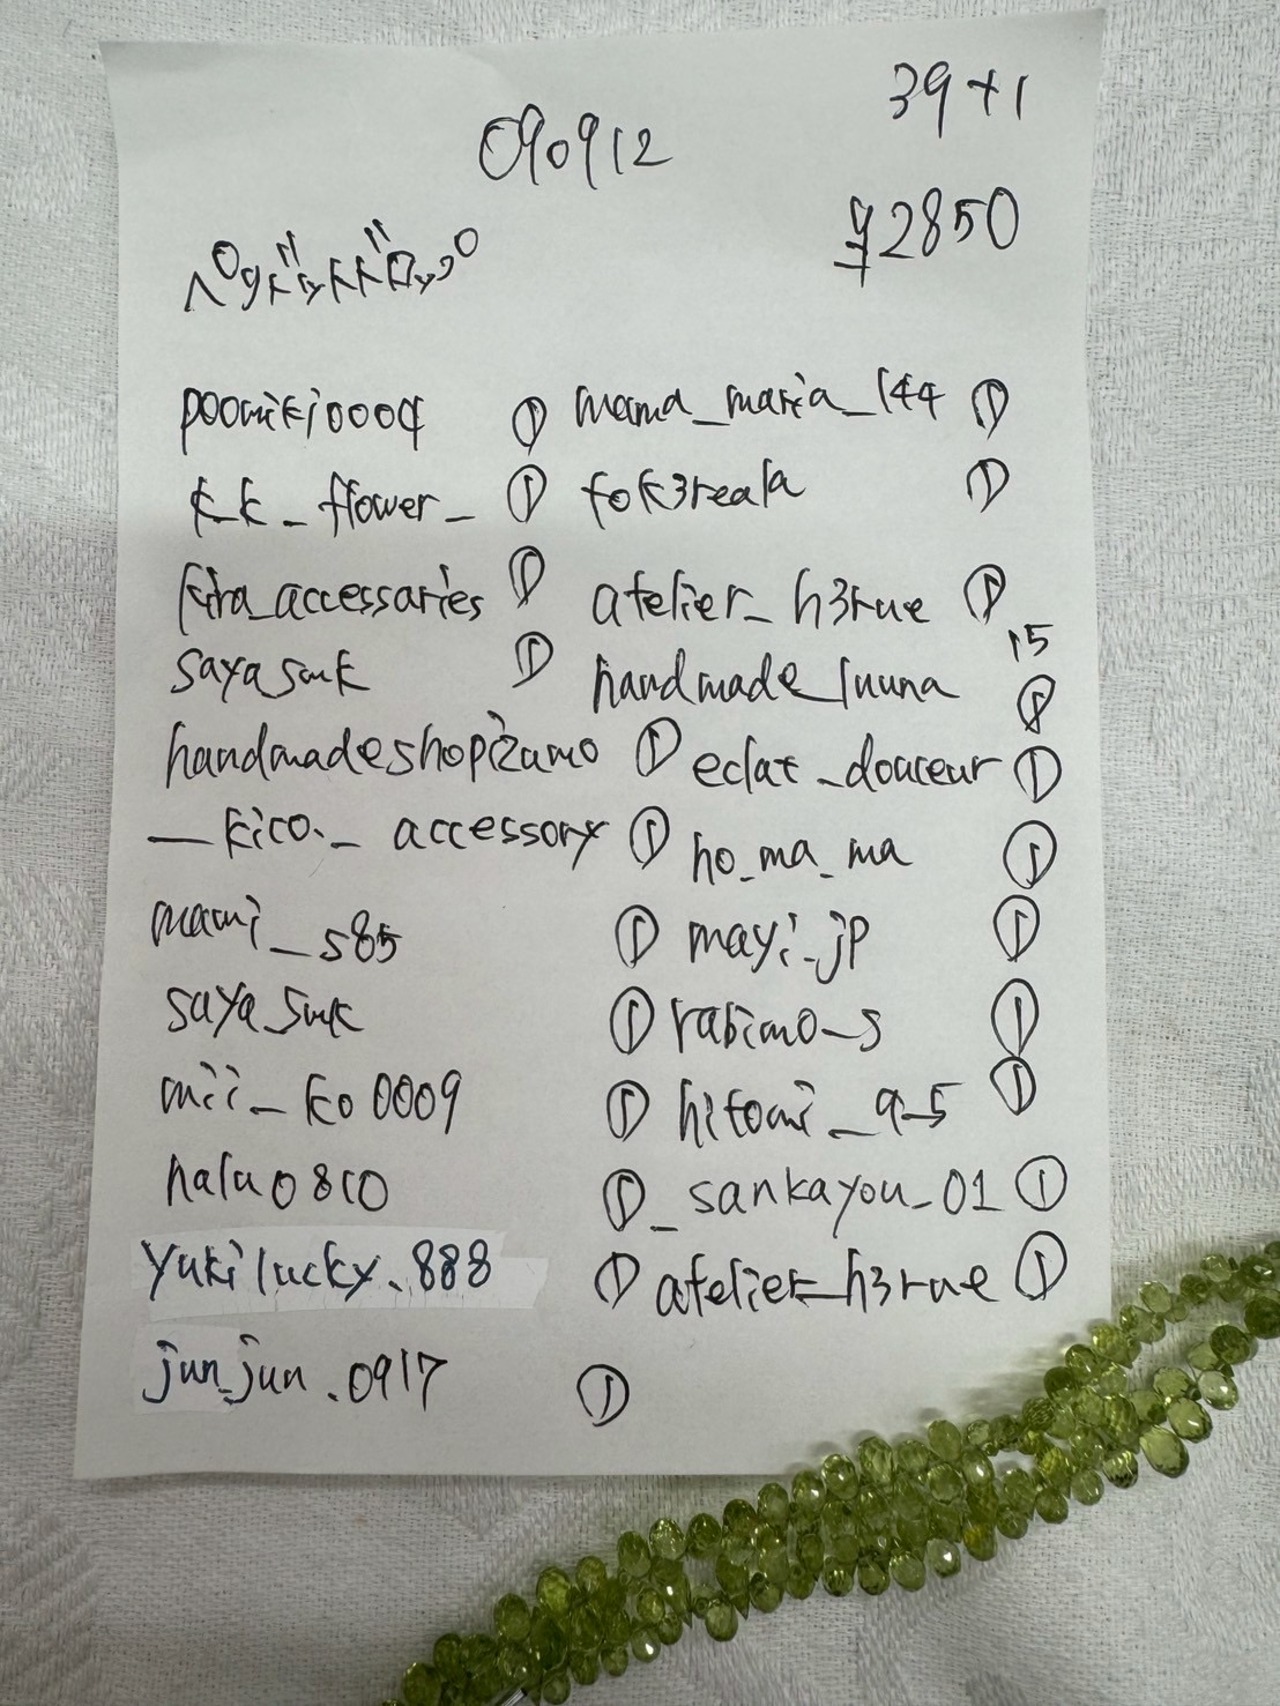 39+1
090912
¥2850
ペリドットドロップ
poomiki0004 ① mama_maria_144 ①
k_k_flower_ ① fok3reala ①
kira_accessaries ① atelier_h3rue ①
15
sayasmk ① handmade_luuna
handmadeshopizumo ① eclat_douceur ①
__kico._accessory ① ho_ma_ma ①
mami_s85 ① mayi_jp ①
sayasmk ① rabimo_s ①
mii_ko0009 ① hitomi_a_5 ①
halu0810 ① _sankayou_01 ①
yukilucky.888 ① atelier_h3rue ①
jun_jun.0917 ①